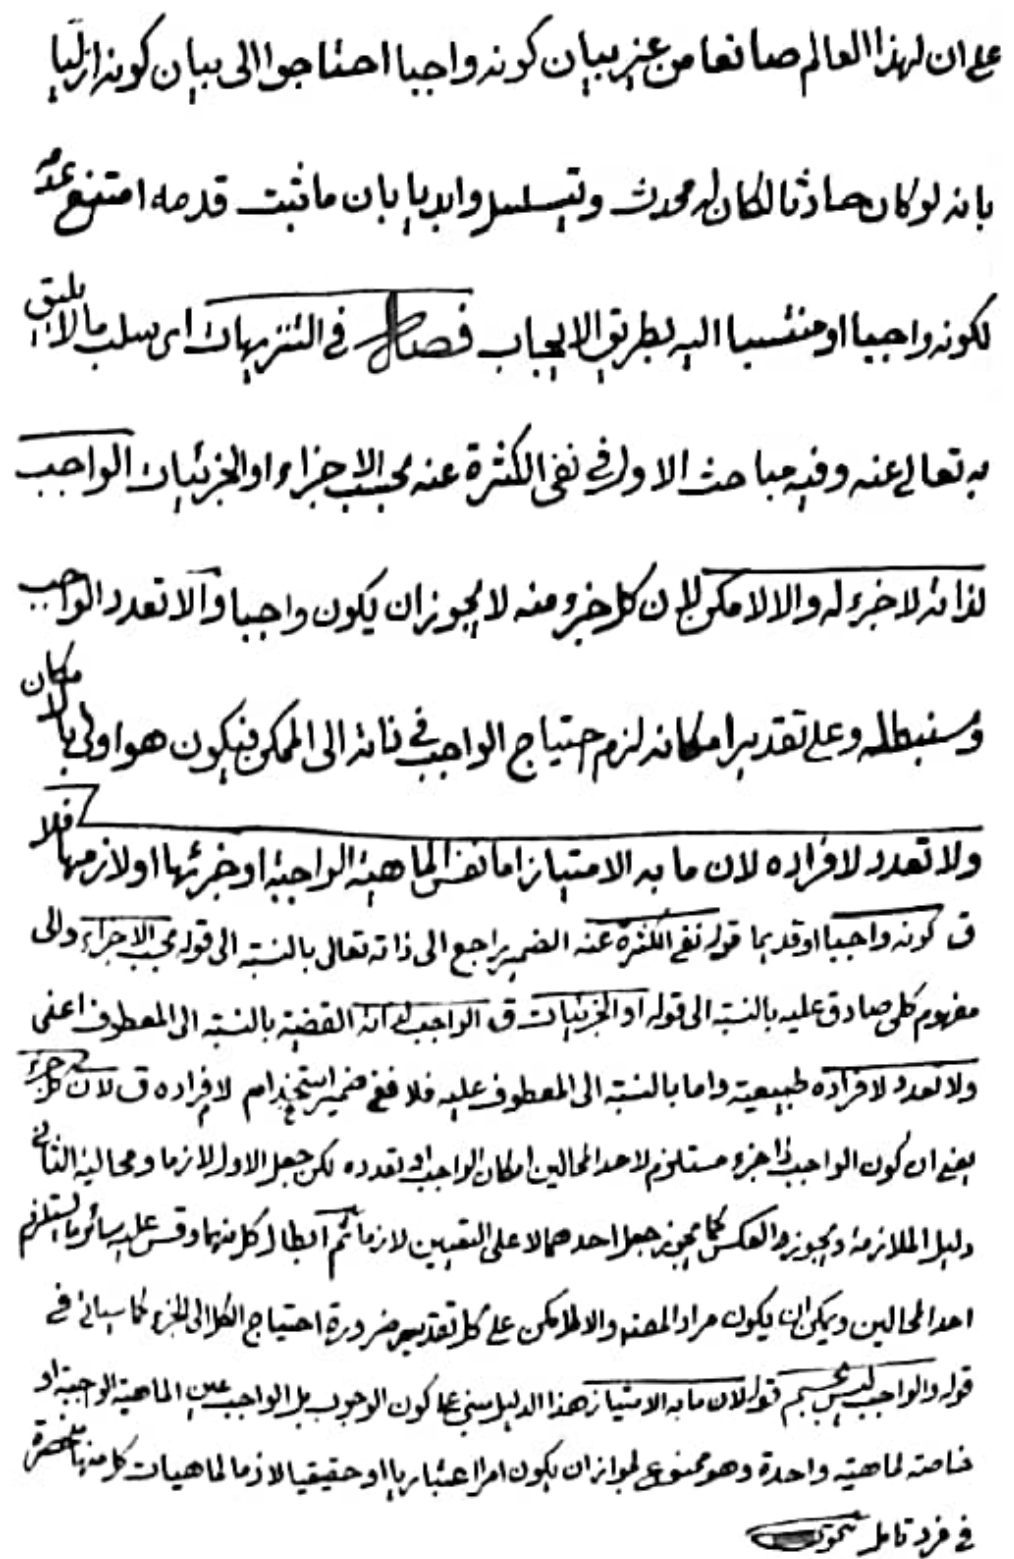 على ان لهذا العالم صانعا من غير بيان كونه واجبا احتاجوا الى بيان كونه ازليا
بانه لو كان حادثا لكان له محدث وتسلسل وابديا بان ما ثبت قدمه امتنع عدمه
لكونه واجبا او منتسبا اليه بطريق الايجاب فصل في التنزيهات اى سلب ما لا يليق
به تعالى عنه وفيه مباحث الاول في نفى الكثرة عنه بحسب الاجزاء او الجزئيات الواجب
لذاته لا جزء له والا لامكن لان كل جزء منه لا يجوز ان يكون واجبا والا تعدد الواجب
وسنبطله وعلى تقدير امكانه لزم احتياج الواجب في ذاته الى الممكن فيكون هو اولى بالامكان
ولا تعدد لافراده لان ما به الامتياز اما نفس الماهية الواجبة او جزئها او لازمها فلا
ق كونه واجبا او قديما قوله نفى الكثرة عنه الضمير راجع الى ذاته تعالى بالنسبة الى قوله بحسب الاجزاء والى
مفهوم كلى صادق عليه بالنسبة الى قوله او الجزئيات ق الواجب لذاته القضية بالنسبة الى المعطوف اعنى
ولا تعدد لافراده طبيعية واما بالنسبة الى المعطوف عليه فلا ففى ضمير استخدام لافراده ق لان كل جزء
يعنى ان كون الواجب ذا جزء مستلزم لاحد المحالين امكان الواجب او تعدده لكن جعل الاول لازما ومحالية الثانى
دليل الملازمة ويجوز العكس كما يجوز جعل احدهما لا على التعيين لازما ثم ابطال كل منهما وقس عليه سائر ما يستلزم
احد المحالين ويمكن ان يكون مراد المصنف والا لامكن على كل تقدير ضرورة احتياج الكل الى الجزء كما سيأتى في
قوله والواجب ليس بجسم قوله لان ما به الامتياز هذا الدليل مبنى على كون الوجوب بل الواجب عين الماهية الواجبة او
خاصة لماهية واحدة وهو ممنوع لجواز ان يكون امرا اعتباريا او حقيقيا لازما لماهيات كل منها منحصرة
في فرد تأمل